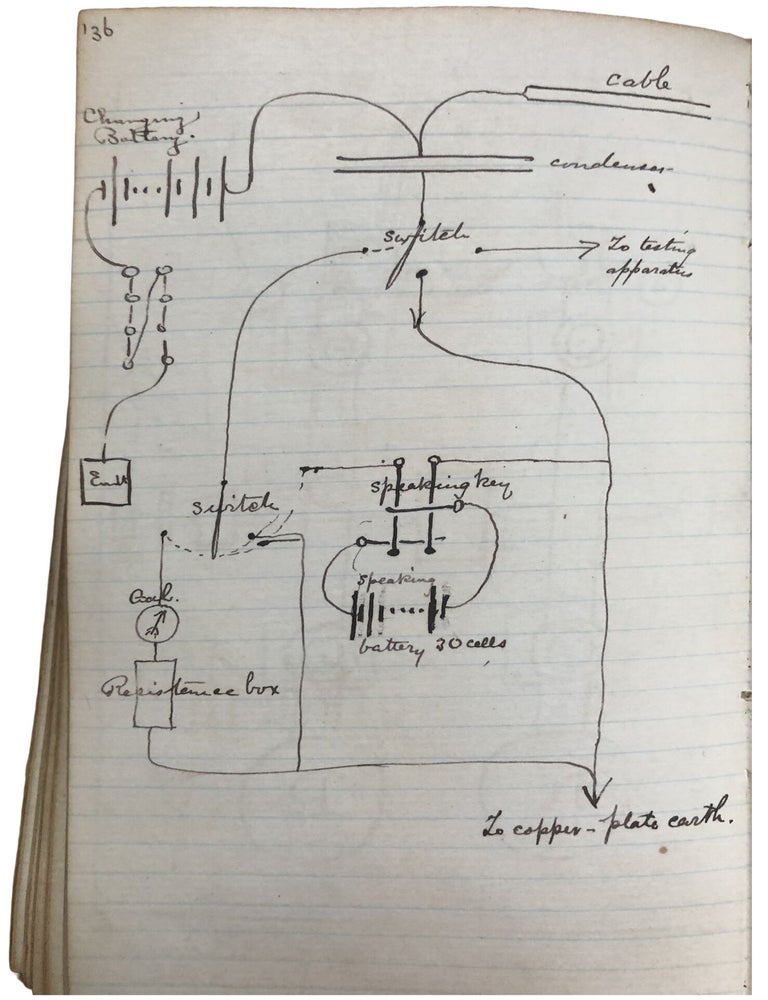 136
cable
Charging
Battery.
condenser
switch
To testing
apparatus
Earth
speaking key
switch
Galv.
speaking
battery 30 cells
Resistance box
To copper-plate earth.